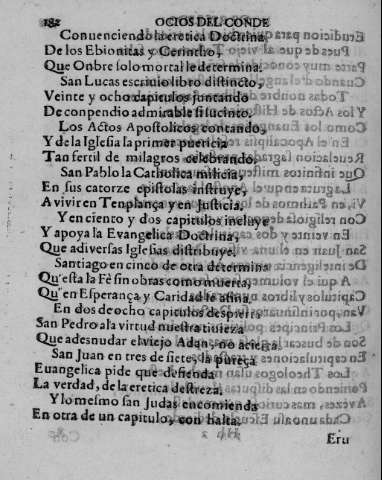 182 OCIOS DEL CONDE
Conuenciendo la eretica Doctrina
De los Ebionitas y Cerintho,
Que Onbre solo mortal le determina.
San Lucas escriuio libro distincto,
Veinte y ocho capitulos juntando
De conpendio admirable si sucinto.
Los Actos Apostolicos contando,
Y de la Iglesia la primer puericia
Tan fertil de milagros celebrando,
San Pablo la Catholica milicia,
En sus catorze epistolas instruye,
A vivir en Tenplança y en Justicia.
Y en ciento y dos capitulos incluye
Y apoya la Evangelica Doctrina,
Que a diversas Iglesias distribuye.
Santiago en cinco de otra determina
Qu'esta la Fè sin obras como muerta,
Qu' en Esperança y Caridad se afina.
En dos de ocho capitulos despierta
San Pedro a la virtud nuestra tiuieza
Que a desnudar el viejo Adan, no acierta.
San Juan en tres de siete, la pureça
Euangelica pide que defienda
La verdad, de la eretica destreza.
Y lo mesmo san Judas encomienda
En otra de un capitulo, con halta,
Eru